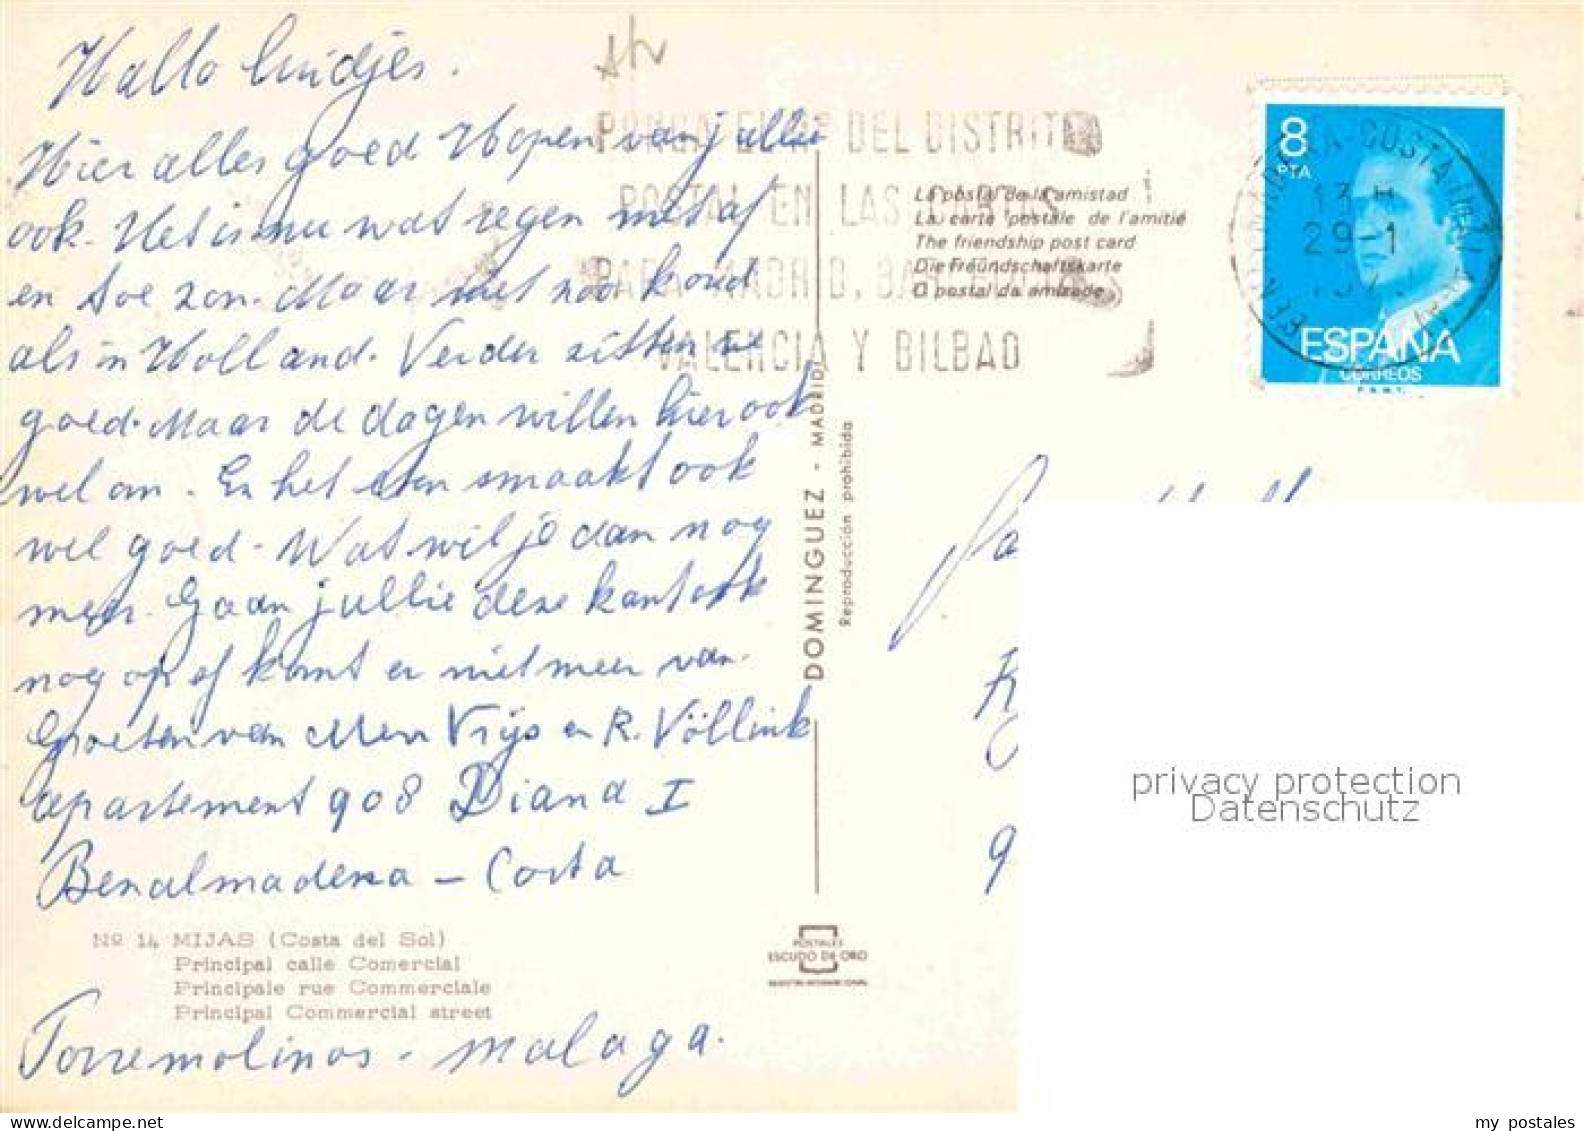 Hallo luidjes.
Hier alles goed Hopen van jullie
ook. Het is nu wat regen met af
en toe zon. Maar niet zoo koud
als in Holland. Verder zitten we
goed. Maar de dagen willen hier ook
wel om. En het eten smaakt ook
wel goed. Wat wil je dan nog
meer. Gaan jullie deze kant ook
nog op of komt er niet meer van.
Groeten van Mevr Vrijs en R. Völlink
apartement 908 Diana I
Benalmadena - Costa
Nº 14 MIJAS (Costa del Sol)
Principal calle Comercial
Principale rue Commerciale
Principal Commercial street
Torremolinos - malaga.
PONGA EL Nº DEL DISTRITO
POSTAL EN LAS
PARA MADRID,
VALENCIA Y BILBAO
La postal de la amistad
La carte postale de l'amitié
The friendship post card
Die Freundschaftskarte
O postal da amizade
DOMINGUEZ - MADRID
Reproducción prohibida
POSTALES
ESCUDO DE ORO
8
PTA
13 H
29-1
ESPAÑA
CORREOS
F.N.M.T.
privacy protection
Datenschutz
my postales